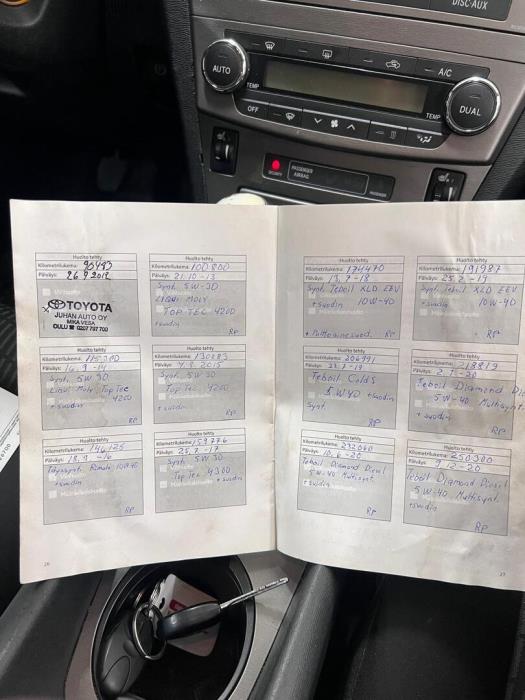 DISC·AUX
AUTO
TEMP
A/C
DUAL
TEMP
OFF
SECURITY
PASSENGER
AIRBAG
PASSENGER
Huolto tehty
Kilometrilukema:
Päiväys: 26.9.2012
TOYOTA
JUHAN AUTO OY
MIKA VESA
OULU ☎ 0207 797 700
Huolto tehty
Kilometrilukema: 100 800
Päiväys: 21.10-13
Synt. 5W-30
Liqui Moly
TOP TEC 4200
+suodin
RP
Huolto tehty
Kilometrilukema:
Päiväys: 16.9-14
Synt. 5W 30
Liqui Moly Top Tec
4200
+ suodin
RP
Huolto tehty
Kilometrilukema: 130883
Päiväys:
Synt. 5W 30
Top Tec 4200
+ suodin
RP
Huolto tehty
Kilometrilukema: 146125
Päiväys:
Täyssynt. Rimula 10W40
+suodin
RP
Huolto tehty
Kilometrilukema: 159776
Päiväys: 25.7-17
Synt. 5W 30
Top Tec 4300
+ suodin
RP
26
Huolto tehty
Kilometrilukema: 174470
Päiväys: 13.7-18
Synt. Teboil XLD EEV
+suodin 10W-40
RP
Huolto tehty
Kilometrilukema: 191987
Päiväys:
Synt. Teboil XLD EEV
+suodin 10W-40
RP
Huolto tehty
Kilometrilukema: 206991
Päiväys:
Teboil Gold S
5W40 +suodin
Synt.
RP
Huolto tehty
Kilometrilukema: 218819
Päiväys:
Teboil Diamond
5W-40 Multisynt.
+ suodin
RP
Huolto tehty
Kilometrilukema:
Päiväys: 10.6-20
Teboil Diamond Diesel
5W-40 Multisynt.
+suodin
RP
Huolto tehty
Kilometrilukema: 250300
Päiväys: 9.12-20
Teboil Diamond Diesel
5W-40 Multisynt.
+suodin
RP
27